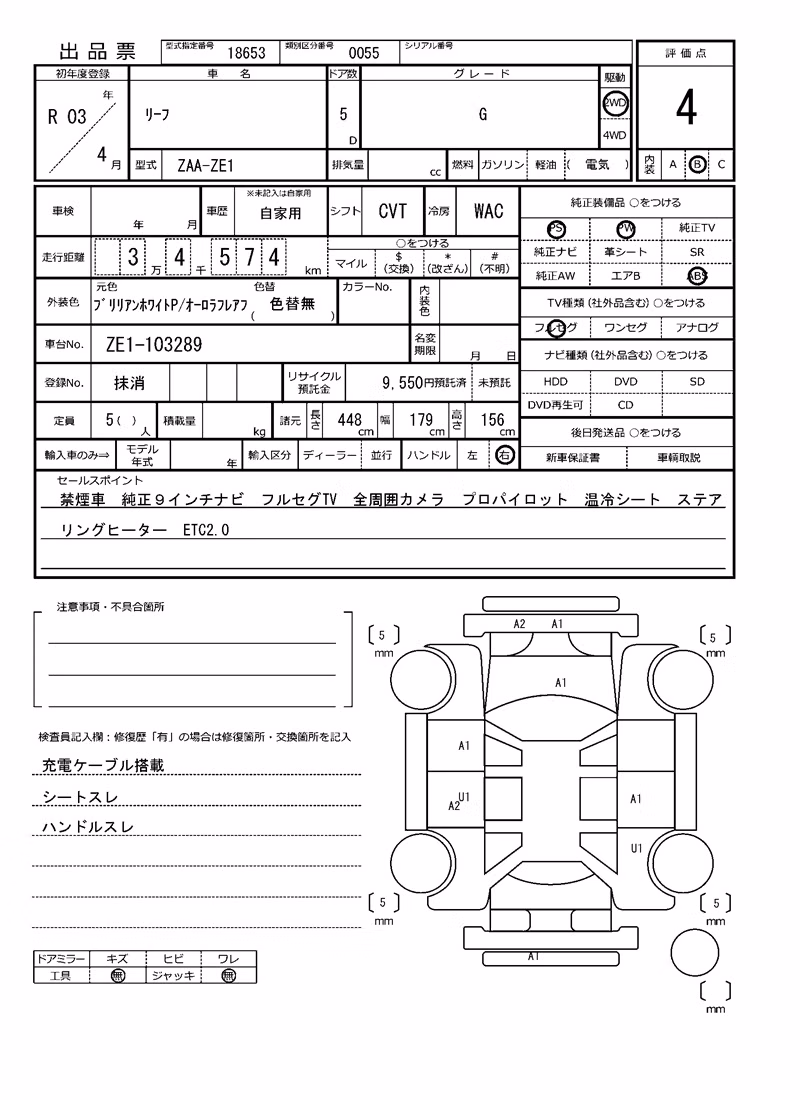 出品票
型式指定番号 18653 類別区分番号 0055 シリアル番号
評価点
4
内装 A B C
初年度登録 車名 ドア数 グレード 駆動
R 03 年 4 月
リーフ 5 D G 2WD 4WD
型式 ZAA-ZE1 排気量 cc 燃料 ガソリン 軽油 ( 電気 )
車検 年 月 車歴 ※未記入は自家用 自家用 シフト CVT 冷房 WAC
走行距離 3 万 4 千 5 7 4 km
○をつける
マイル $ (交換) * (改ざん) # (不明)
外装色 元色 色替 カラーNo. 内装色
ブリリアンホワイトP/オーロラフレアフ ( 色替無 )
車台No. ZE1-103289 名変期限 月 日
登録No. 抹消 リサイクル預託金 9,550円預託済 未預託
定員 5( ) 人 積載量 kg 諸元 長さ 448 cm 幅 179 cm 高さ 156 cm
輸入車のみ⇒ モデル年式 年 輸入区分 ディーラー 並行 ハンドル 左 右
純正装備品 ○をつける
PS PW 純正TV
純正ナビ 革シート SR
純正AW エアB ABS
TV種類(社外品含む)○をつける
フルセグ ワンセグ アナログ
ナビ種類(社外品含む)○をつける
HDD DVD SD
DVD再生可 CD
後日発送品 ○をつける
新車保証書 車輌取説
セールスポイント
禁煙車 純正9インチナビ フルセグTV 全周囲カメラ プロパイロット 温冷シート ステア
リングヒーター ETC2.0
注意事項・不具合箇所
検査員記入欄：修復歴「有」の場合は修復箇所・交換箇所を記入
充電ケーブル搭載
シートスレ
ハンドルスレ
ドアミラー キズ ヒビ ワレ
工具 無 ジャッキ 無
A2 A1
5 mm
5 mm
A1
A1
U1
A2
A1
U1
5 mm
5 mm
A1
mm